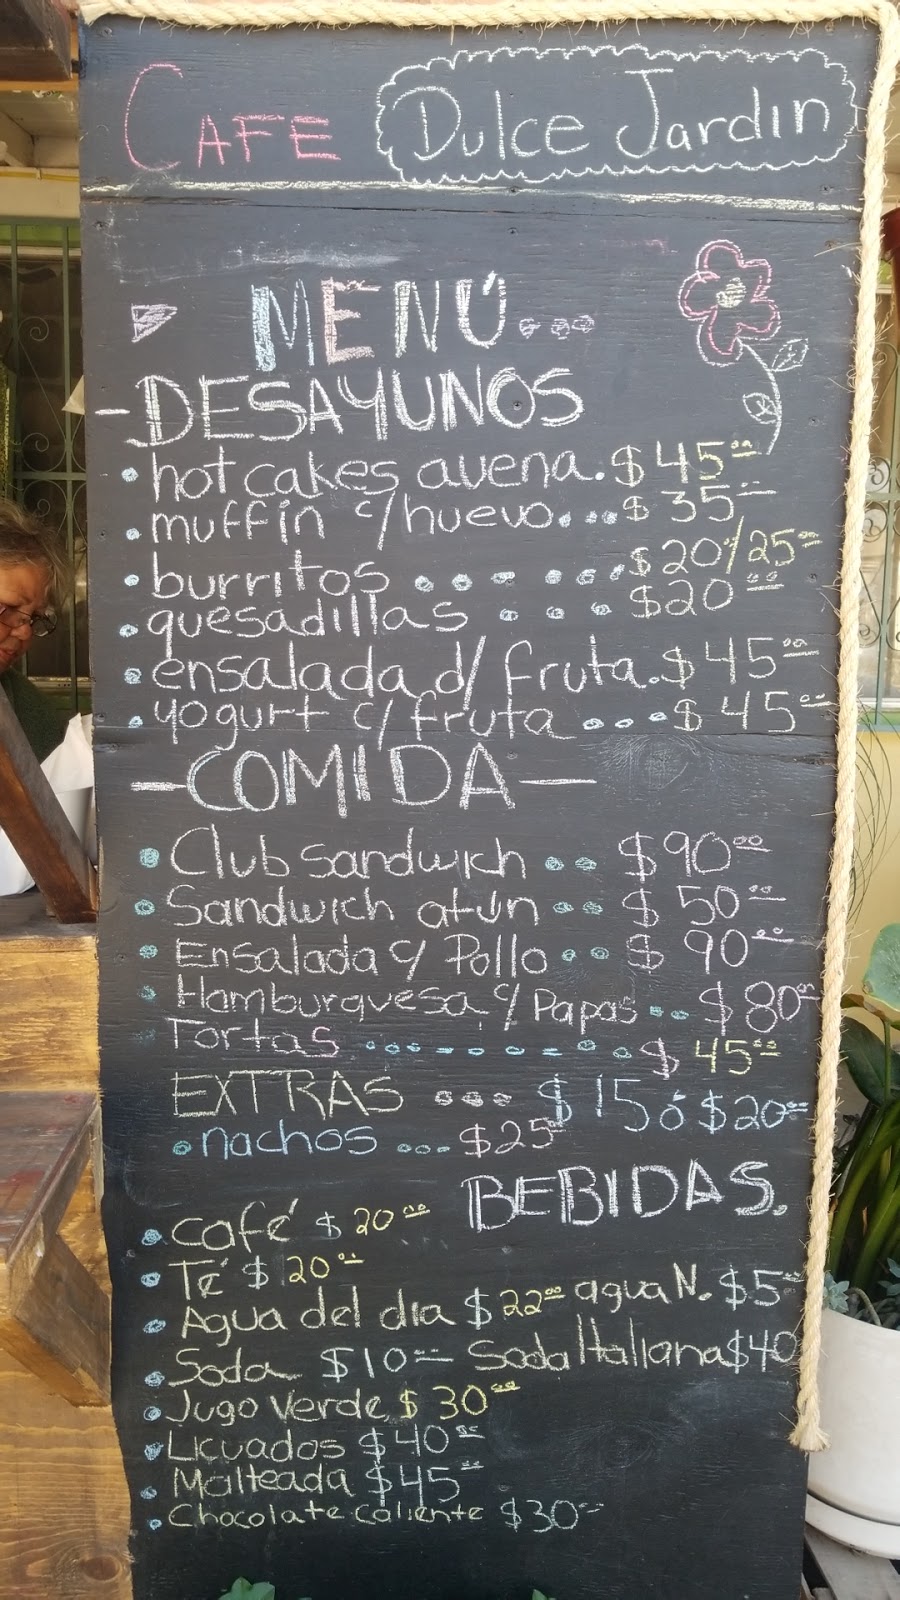 CAFE Dulce Jardin
MENÚ...
-DESAYUNOS
• hot cakes avena. $45.00
• muffin c/huevo... $35.00
• burritos . . . . . . $20/25.00
• quesadillas . . . . $20.00
• ensalada d/ fruta. $45.00
• yogurt c/ fruta .... $45.00
-COMIDA-
• Club Sandwich .. $90.00
• Sandwich atún .. $50.00
• Ensalada c/ Pollo .. $90.00
• Hamburguesa c/ Papas .. $80.00
Tortas ......... $45.00
EXTRAS ... $15 ó $20.00
• nachos ... $25
BEBIDAS.
• Café $20.00
• Té $20.00
• Agua del dia $22.00 agua N. $5.00
• Soda $10.00 Soda Italiana $40
• Jugo verde $30.00
• Licuados $40.00
• Malteada $45.00
• Chocolate caliente $30.00